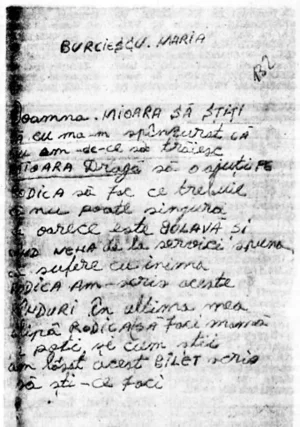 BURCIESCU. MARIA
132
Doamna. MIOARA SĂ ȘTIȚI
că eu ma-m spînzurat CĂ
nu am de-ce să trăiesc
MIOARA Dragă să o ajuți PE
RODICA să fac ce trebuie
că nu poate singură
oarece este BOLAVĂ și
de la seroici spună
că sufere cu inima
RODICA AM-scris aceste
RÎNDURI în ultima mea
clipă RODICA SA faci mamă
ce poți, și cum știi
am lăsat acest BILET scris
să ști-ce faci